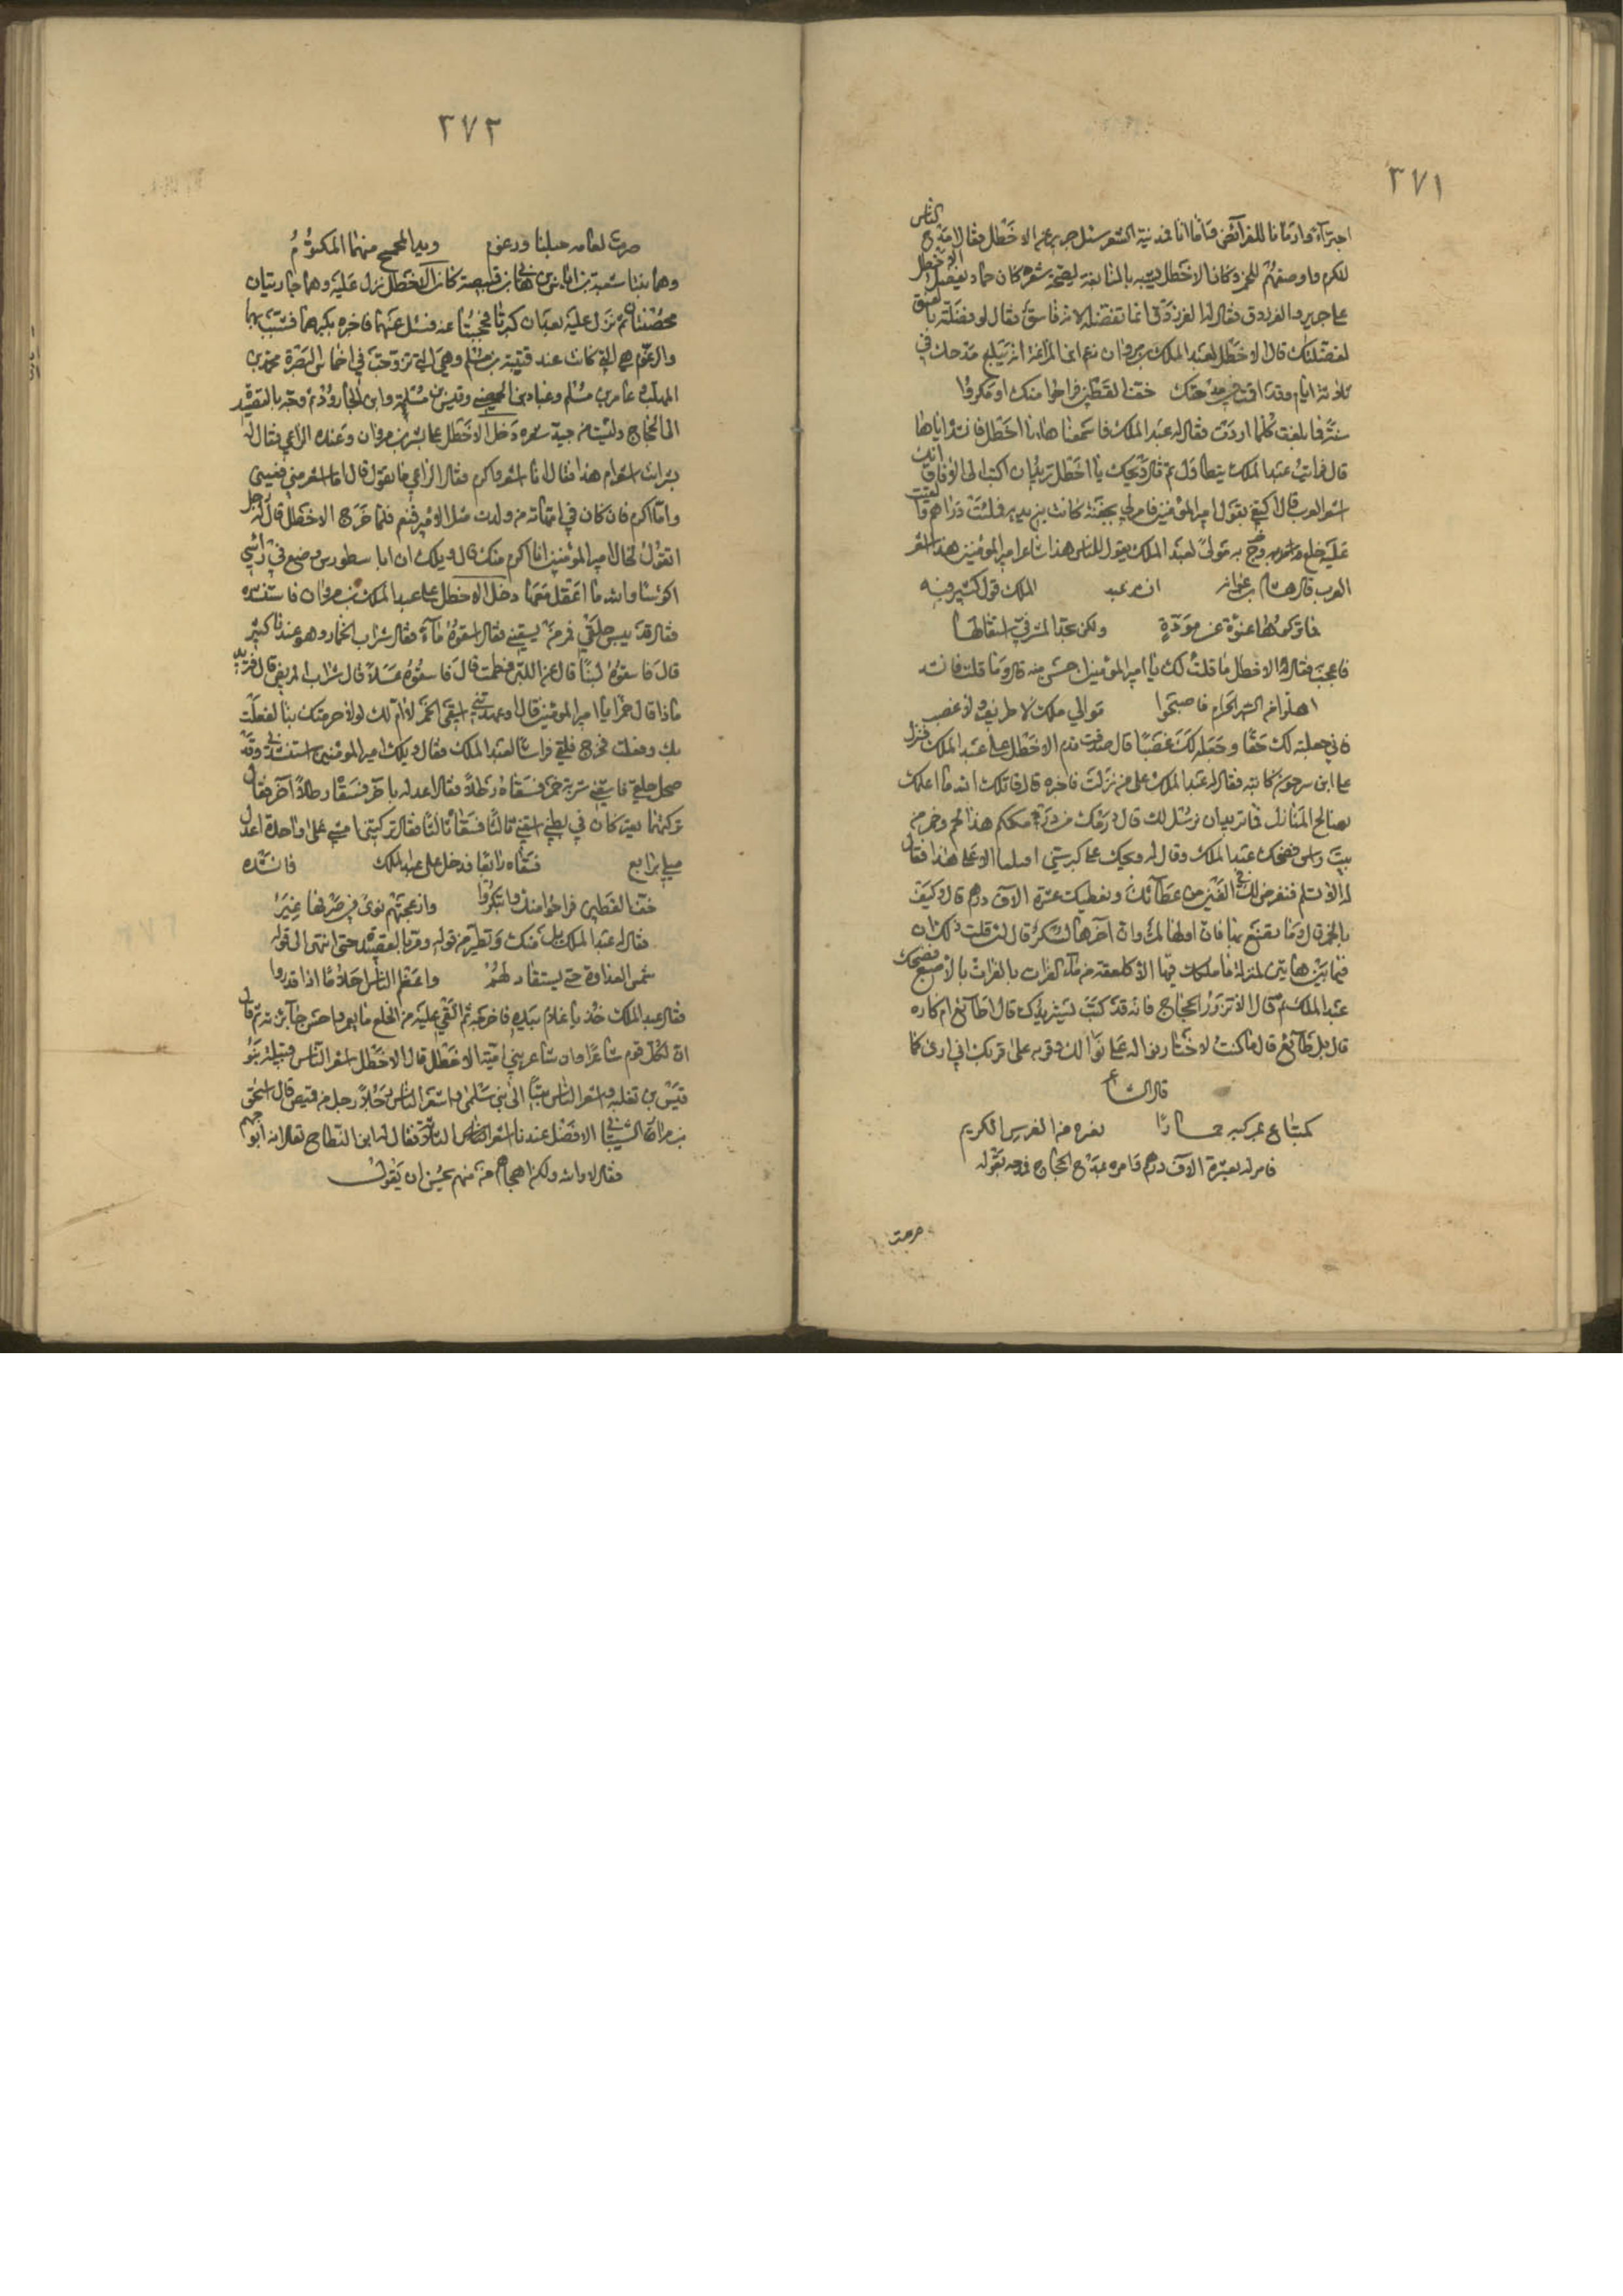 ٣٧١
اجتزاء وارمانا للفرائض فاما انا فمدينة الشعر سئل جرير عن الاخطل فقال امدح الناس
للكرم واوصفهم للخمر وكان الاخطل يشبه بالنابغة لصحة شعره كان حماد يفضل الاخطل
على جرير والفرزدق فقال له الفرزدق انما تفضله لانه فاسق فقال لو فضلته بالفسق
لفضلتك قال الاخطل لعبد الملك بن مروان زعم ابن المراغة انه يبلغ مدحك في
ثلاثة ايام وقد اقمت في مدحتك خف القطين فراحوا منك او بكروا
سنة فما بلغت كلما اردت فقال له عبد الملك فاسمعناها يا اخطل فانشد اياها
قال فرايت عبد الملك يتطاول ثم قال ويحك يا اخطل تريد ان اكتب الى الافاق انك
اشعر العرب قال اكتفي بقول امير المؤمنين فامر لي بجفنة كانت بين يديه فملئت دراهم والقيت
عليه خلع وخرج به مولى لعبد الملك يقول للناس هذا شاعر امير المؤمنين هذا اشعر
العرب قال هشام عبد الملك قول كثير فيه
فما تركوها عنوة عن مودة ولكن بحد المشرفي استقالها
فاعجب فقال له الاخطل ما قلت لك يا امير المؤمنين احسن منه قال وما قلت فانشد
اهلوا من الشهر الحرام فاصبحوا موالي ملك لا طريف ولا غصب
فاني جعلته لك حقا وجعله لك غصبا قال صدقت قدم الاخطل على عبد الملك فنزل
على ابن سرجون كاتبه فقال له عبد الملك على من نزلت فاخبره قال قاتلك الله ما اعلمك
بصالح المنازل فما تريد ان نرسل لك قال درمك من درمككم هذا ولحم وخمر من
بيت راس فضحك عبد الملك وقال له ويحك
له الا تسلم فنفرض لك في الفين من عطائك ونعطيك عشرة الاف درهم قال وكيف
بالخمر قال وما تصنع بها فان اولها لمر وان آخرها لسكر قال لئن قلت ذلك ان
فيما بين هاتين لمنزلة ما ملكك فيها الا كلعقة من ماء الفرات بالاصبع فضحك
عبد الملك ثم قال الا تزور الحجاج فانه قد كتب يستزيرك قال اطائع ام كاره
قال بل طائع قال ما كنت لاختار نواله على نوالك وقربه على قربك اني اذن كما
قال الشاعر
كمبتاع بمركبه حمارا بغره من الفرس الكريم
فامر له بعشرة الاف درهم وامره بمدح الحجاج فمدحه بقوله
صرمت
٣٧٢
صرمت امامه حبلنا ورعوم وبدا المجمجم منهما المكتوم
وهما بنتا سعيد بن اياس بن هاني بن قبيصة كان الاخطل نزل عليه وهما جاريتان
فخدمتاه ثم نزل عليه بعد ان كبرتا فحجبتا عنه فسئل عنهما فاخبره بكبرهما فشبب بهما
والرعوم هي التي كانت عند قتيبة بن مسلم وهي التي تزوجت في اخماس البصرة محمد بن
المهلب عامر بن مسلم وعباد بن الحصين وقيس بن وابن الجارود ثم وجه بالقصيدة
الى الحجاج وليست من جيد شعره دخل الاخطل على بشر بن مروان وعنده الراعي فقال له
بشر انت اشعر ام هذا فقال انا اشعر واكرم فقال الراعي ما تقول قال اما اشعر مني فعسى
واما اكرم فان كان في امهاته من ولدت مثل الامير فنعم فلما خرج الاخطل قال له رجل
اتقول لخال امير المؤمنين انا اكرم منك قال ويلك ان ابا سطورس وضع في راسي
اكؤسا والله ما اعقل معها دخل الاخطل على عبد الملك بن مروان فاستنشده
فقال قد يبس حلقي فمر من يسقيني فقال اسقوه ماء فقال شراب الحمار وهو عندنا كثير
قال فاسقوه لبنا قال عن اللبن فطمت قال فاسقوه عسلا قال شراب المريض قال فتريد
ماذا قال خمرا يا امير المؤمنين قال اوعهدتني اسقي الخمر لا ام لك لولا حرمتك بنا لفعلت
بك وفعلت فخرج فلقي فراشا لعبد الملك فقال ويلك امير المؤمنين استنشدني وقد
صحل حلقي فاسقني شربة خمر فسقاه رطلا فقال اعدله بآخر فسقاه رطلا آخر فقال
تركتهما يعتركان في بطني اسقني ثالثا فسقاه ثالثا فقال تركتني امشي على واحدة اعدل
ميلي برابع فسقاه رابعا فدخل على عبد الملك فانشده
خف القطين فراحوا منك وابتكروا وازعجتهم نوى في صرفها غير
فقال له عبد الملك بل منك وتطير من قوله ومر بالقصيدة حتى انتهى الى قوله
شمس العداوة حتى يستقاد لهم واعظم الناس احلاما اذا قدروا
فقال عبد الملك خذ يا غلام بيده فاخرجه ثم القي عليه من الخلع ما يغمره واحسن جائزته ثم قال
ان لكل قوم شاعرا وان شاعر بني امية الاخطل قال الاخطل اشعر الناس قبيلة بنو
قيس بن ثعلبة واشعر الناس بيتا آل بني سلمى واشعر الناس رجلا رجل من قميص قال اسحق
بن مرار الشيباني الافضل عندنا اشعر الناس الثلاثة فقال له ابن النطاح
فقال لا والله ولكن اهجاهم من منهم يحسن ان يقول